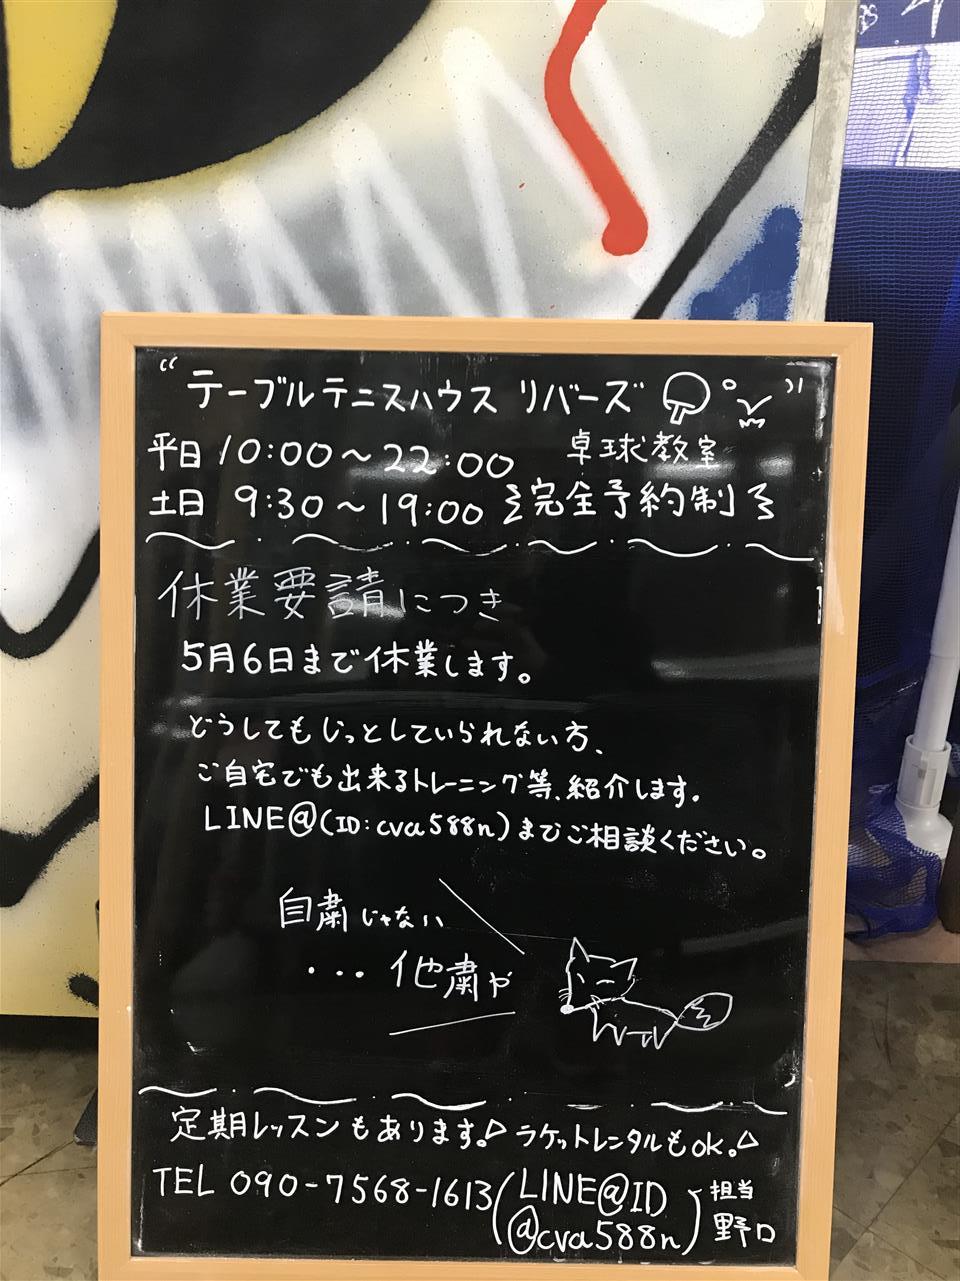 “テーブルテニスハウス リバーズ”
平日 10:00～22:00 卓球教室
土日 9:30～19:00 完全予約制
休業要請につき
5月6日まで休業します。
どうしてもじっとしていられない方、
ご自宅でも出来るトレーニング等、紹介します。
LINE@(ID:cva588n)までご相談ください。
自粛じゃない
・・・他粛や
定期レッスンもあります。ラケットレンタルもOK。
TEL 090-7568-1613(LINE@ID
@cva588n)
担当
野口